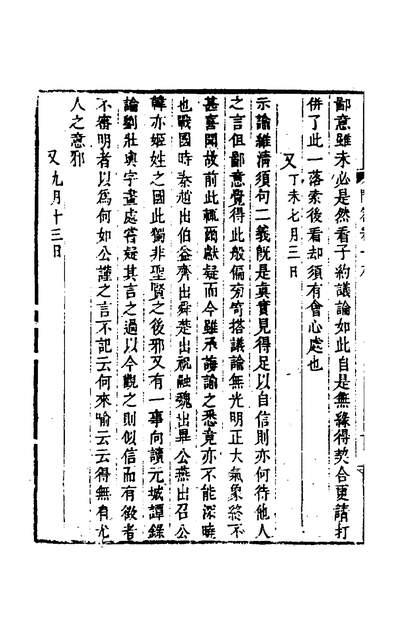 鄙意雖未必是然看子約議論如此自是無緣得契合更請打
併了此一落索後看却須有會心處也
又丁未七月三日
示諭維清須句二義既是真實見得足以自信則亦何待他人
之言但鄙意覺得此般偏旁笴搭議論無光明正大氣象終不
甚喜聞故前此輒爾獻疑而今雖承誨諭之悉竟亦不能深曉
也戰國時秦趙出伯益齊出舜楚出祝融魏出畢公燕出召公
韓亦姬姓之國此獨非聖賢之後邪又有一事向讀元城譚錄
論劉壯輿字畫處嘗疑其言之過以今觀之則似信而有徵者
不審明者以為何如公謹之言不記云何來喻云云得無有尤
人之意邪
又九月十三日